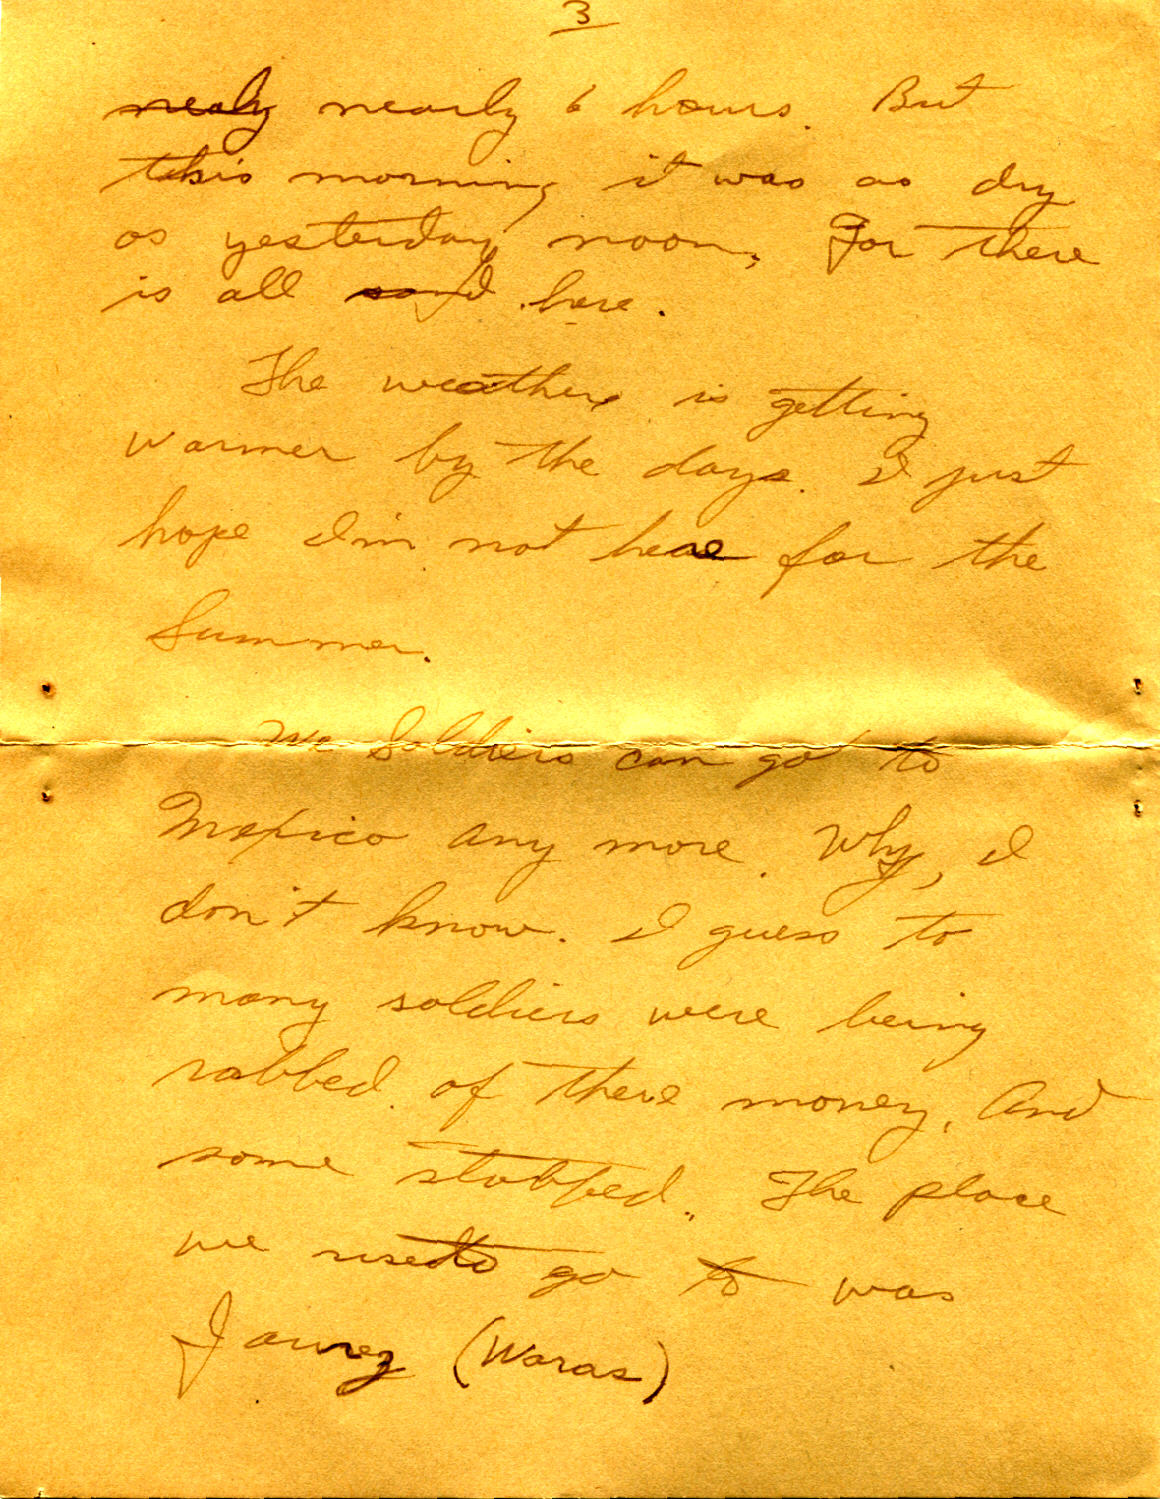 3
nealy nearly 6 hours. But
this morning it was as dry
as yesterday noon. For there
is all sand here.
The weather is getting
warmer by the days. I just
hope I'm not here for the
Summer.
We Soldiers can go to
Mexico any more. Why, I
don't know. I guess to
many soldiers were being
robbed of there money. And
some stabbed. The place
we used to go to was
Jaurez (Waras)